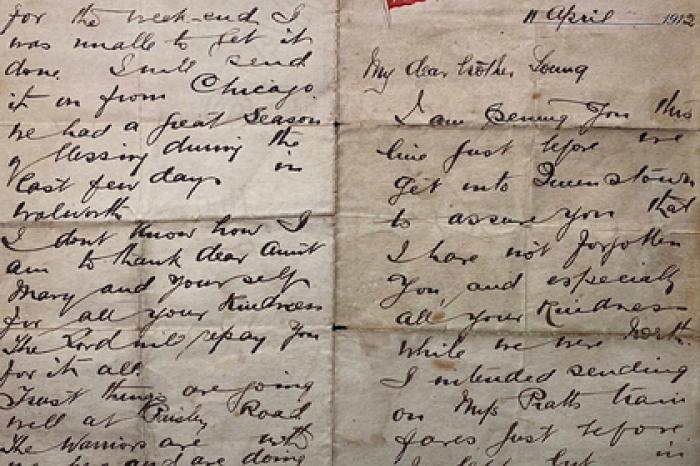 11 April 1912
My dear brother Young
I am sening you this
line just before we
get into Queenstown
to assure you that
I have not forgotten
you, and especially
all your kindness
while we were North.
I intended sending
on Miss Pratts train
fares just before
I left but in
for the week-end I
was unable to get it
done. I will send
it on from Chicago.
we had a great season
of blessing during the
last few days in
walworth
I dont know how I
am to thank dear Aunt
Mary and yourself
for all your kindness
The Lord will repay you
for it all.
Trust things are going
well at Paisley Road
The Warriors are with
and are doing